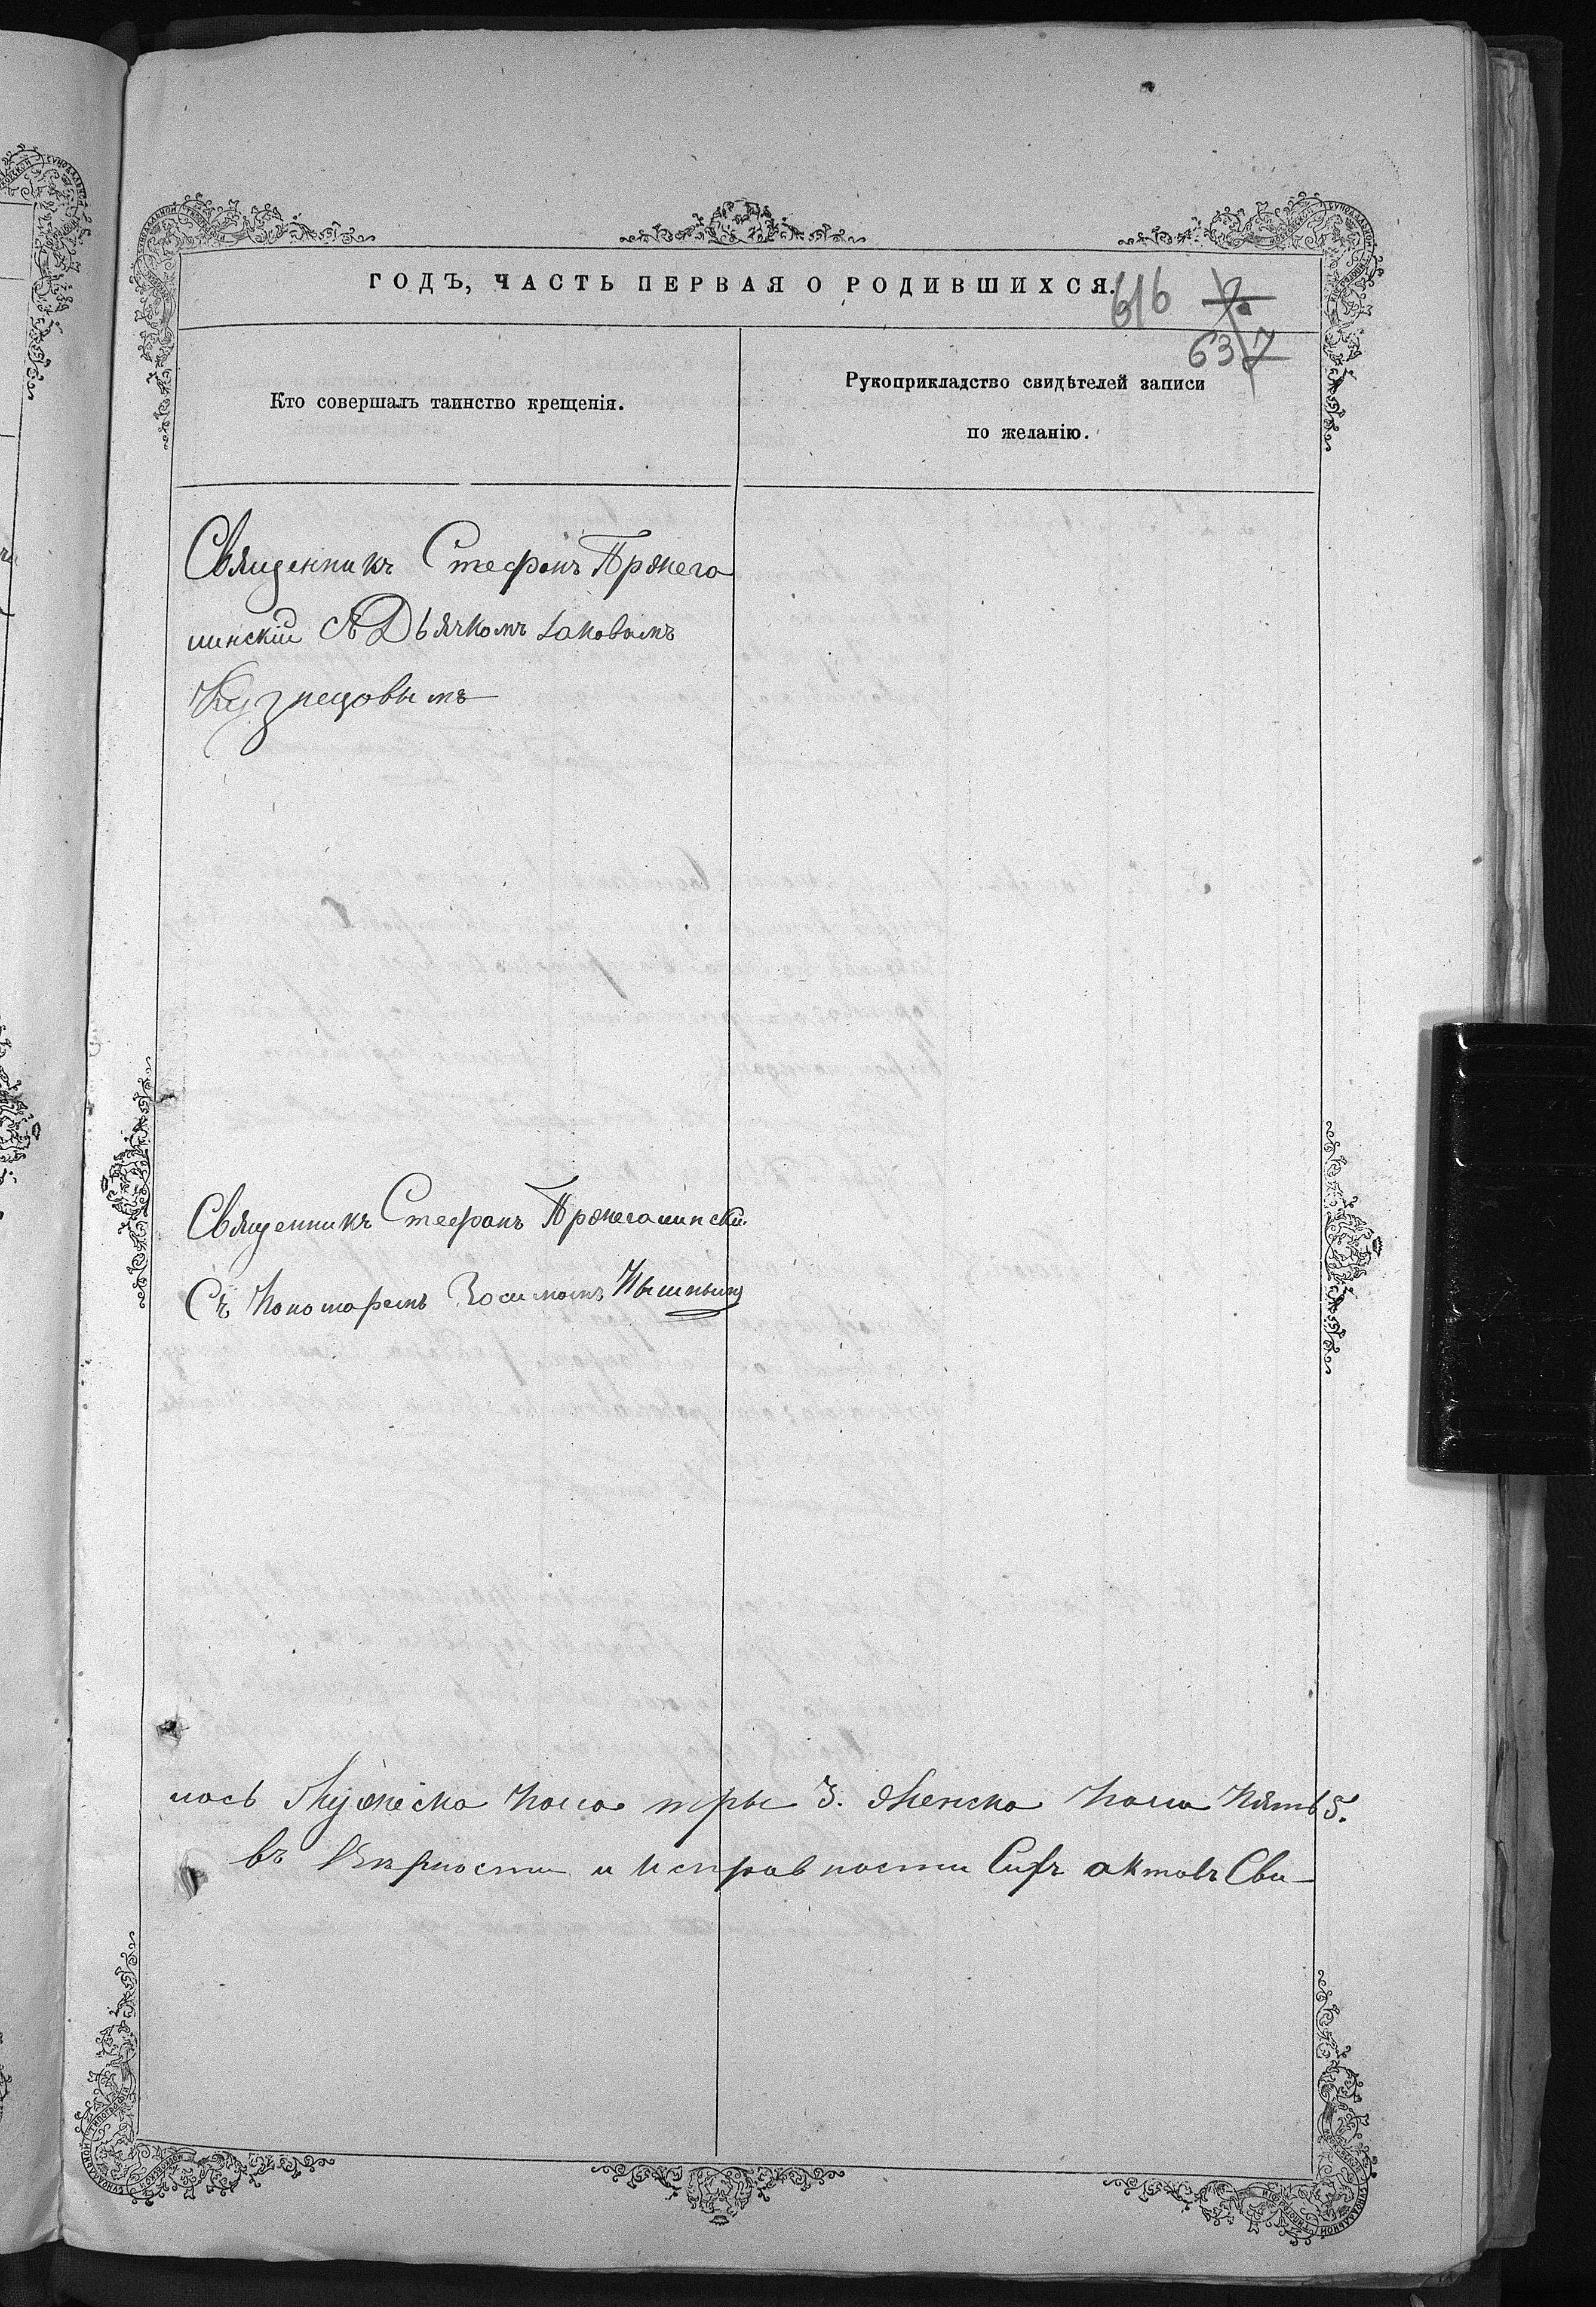 ГОДЪ, ЧАСТЬ ПЕРВАЯ О РОДИВШИХСЯ.
616
637
Кто совершалъ таинство крещенія.
Рукоприкладство свидѣтелей записи
по желанію.
Священникъ Стефанъ Пржега
линскій съ Дьячкомъ Іаковымъ
Кузнецовымъ
Священникъ Стефанъ Пржегалински
Съ Пономаремъ Зосимомъ
лось Мужеска пола три 3. Женска пола пять 5.
въ Вѣрности и Исправности Сихъ актовъ Сви-